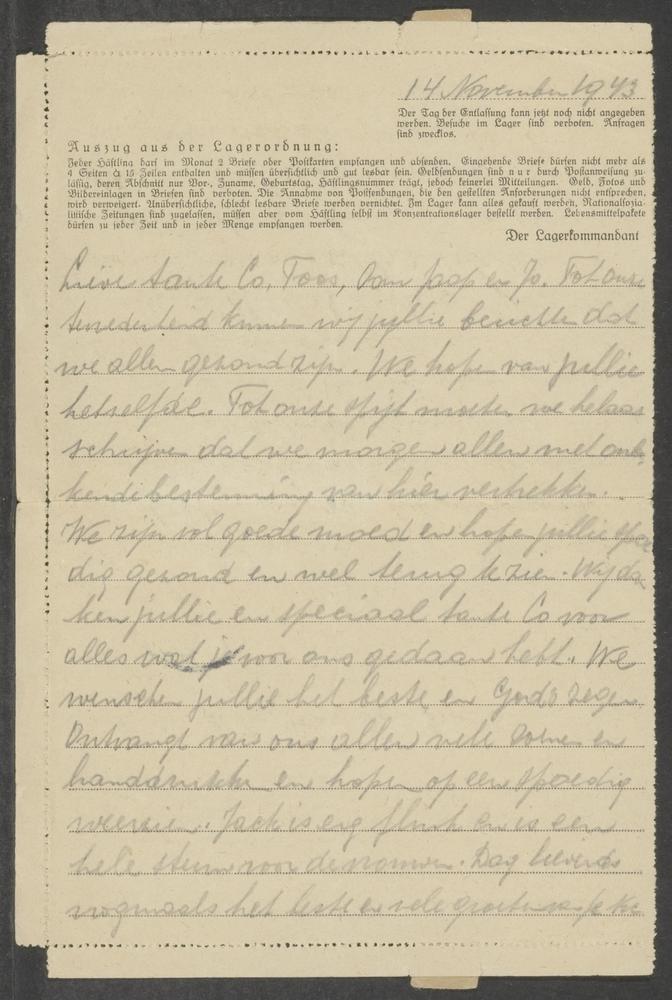 14 November 1943
Der Tag der Entlassung kann jetzt noch nicht angegeben
werden. Besuche im Lager sind verboten. Anfragen
sind zwecklos.
Auszug aus der Lagerordnung:
Jeder Häftling darf im Monat 2 Briefe oder Postkarten empfangen und absenden. Eingehende Briefe dürfen nicht mehr als
4 Seiten à 15 Zeilen enthalten und müssen übersichtlich und gut lesbar sein. Geldsendungen sind nur durch Postanweisung zu-
lässig, deren Abschnitt nur Vor-, Zuname, Geburtstag, Häftlingsnummer trägt, jedoch keinerlei Mitteilungen. Geld, Fotos und
Bildereinlagen in Briefen sind verboten. Die Annahme von Postsendungen, die den gestellten Anforderungen nicht entsprechen,
wird verweigert. Unübersichtliche, schlecht lesbare Briefe werden vernichtet. Im Lager kann alles gekauft werden, Nationalsozia-
listische Zeitungen sind zugelassen, müssen aber vom Häftling selbst im Konzentrationslager bestellt werden. Lebensmittelpakete
dürfen zu jeder Zeit und in jeder Menge empfangen werden.
Der Lagerkommandant
Lieve tante Co, Toos, Oom Jaap en Jo. Tot onze
tevredenheid kunnen wij jullie berichten dat
we allen gezond zijn. We hopen van jullie
hetzelfde. Tot onze spijt moeten we helaas
schrijven dat we morgen allen met onbe-
kende bestemming van hier vertrekken.
We zijn vol goede moed en hopen jullie spoe
dig gezond en wel terug te zien. Wij dan
ken jullie en speciaal tante Co voor
alles wat je voor ons gedaan hebt. We
wenschen jullie het beste en Gods zegen
Ontvangt van ons allen vele zoenen en
handdrukken en hopen op een spoedig
weerzien. Jack is erg flink en is een
hele steun voor de vrouwen. Dag lieverds
nogmaals het beste en vele groeten van je